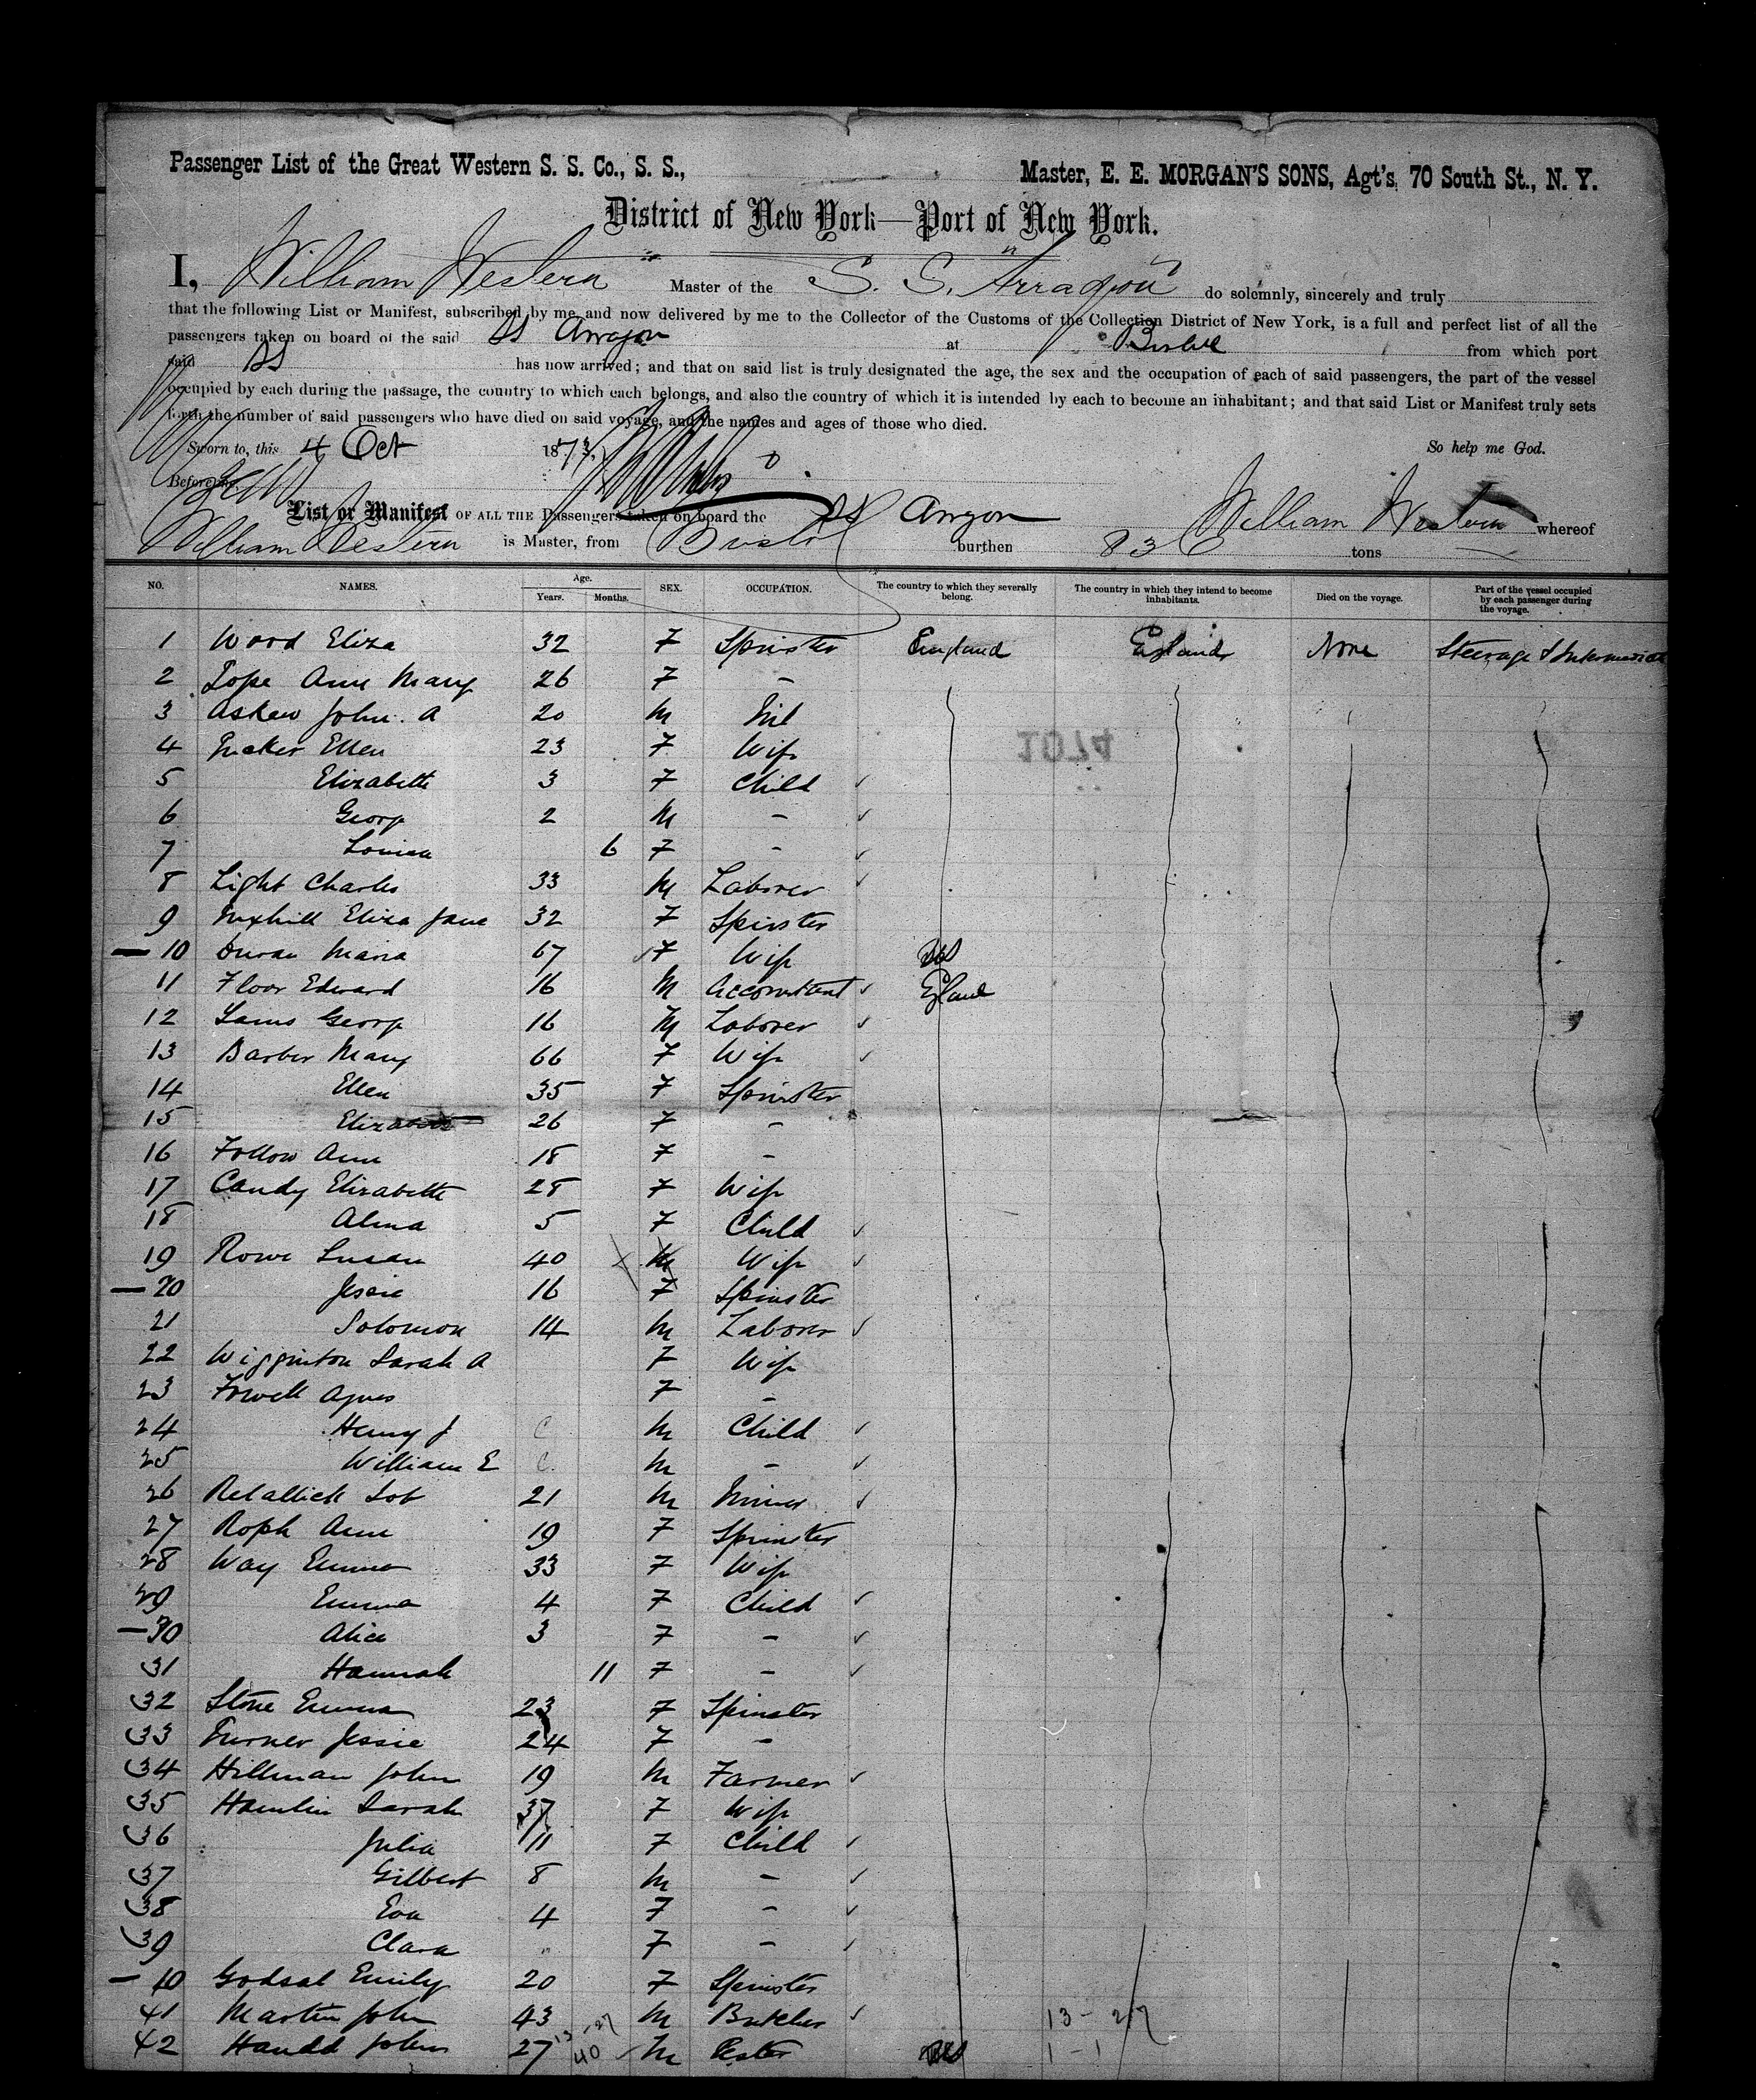 Passenger List of the Great Western S. S. Co., S. S., Master, E. E. MORGAN'S SONS, Agt's, 70 South St., N. Y.
District of New York—Port of New York.
I, William Western Master of the S. S. "Arragon" do solemnly, sincerely and truly
that the following List or Manifest, subscribed by me, and now delivered by me to the Collector of the Customs of the Collection District of New York, is a full and perfect list of all the
passengers taken on board of the said SS Arragon at Bristol from which port
said SS has now arrived; and that on said list is truly designated the age, the sex and the occupation of each of said passengers, the part of the vessel
occupied by each during the passage, the country to which each belongs, and also the country of which it is intended by each to become an inhabitant; and that said List or Manifest truly sets
forth the number of said passengers who have died on said voyage, and the names and ages of those who died.
Sworn to, this 4 Oct 1873, So help me God.
Before me
List or Manifest OF ALL THE Passengers taken on board the SS Arragon William Western whereof
William Western is Master, from Bristol burthen 836 tons
NO. NAMES. Age. Years. Months. SEX. OCCUPATION. The country to which they severally belong. The country in which they intend to become inhabitants. Died on the voyage. Part of the vessel occupied by each passenger during the voyage.
1 Wood Eliza 32 F Spinster England England None Steerage & Intermediate
2 Ann Mary 26 F -
3 Askew John. A 20 M
4 Ellen 23 F Wife
1074
5 Elizabeth 3 F Child
6 George 2 M -
7 Louisa 6 F -
8 Light Charles 33 M Laborer
9 Eliza Jane 32 F Spinster
10 Maria 67 F Wife
11 Floor Edward 16 M Accountant England
12 George 16 M Laborer
13 Barber Mary 66 F Wife
14 Ellen 35 F Spinster
15 Elizabeth 26 F -
16 Follow Ann 18 F -
17 Candy Elizabeth 28 F Wife
18 Alma 5 F Child
19 Rowe Susan 40 Wife
20 Jessie 16 F Spinster
21 Solomon 14 M Laborer
22 Wigginton Sarah A F Wife
23 Agnes F -
24 Henry J C M Child
25 William E C M -
26 Retallick Job 21 M Miner
27 Roph Ann 19 F Spinster
28 Way Emma 33 F Wife
29 Emma 4 F Child
30 Alice 3 F -
31 Hannah 11 F -
32 Stone Emma 23 F Spinster
33 Turner Jessie 24 F -
34 Hillman John 19 M Farmer
35 Hamlin Sarah 37 F Wife
36 Julia 11 F Child
37 Gilbert 8 M -
38 Eva 4 F -
39 Clara F -
40 Godsal Emily 20 F Spinster
41 Martin John 43 M Butcher 13-27
42 John 27 M 1-1